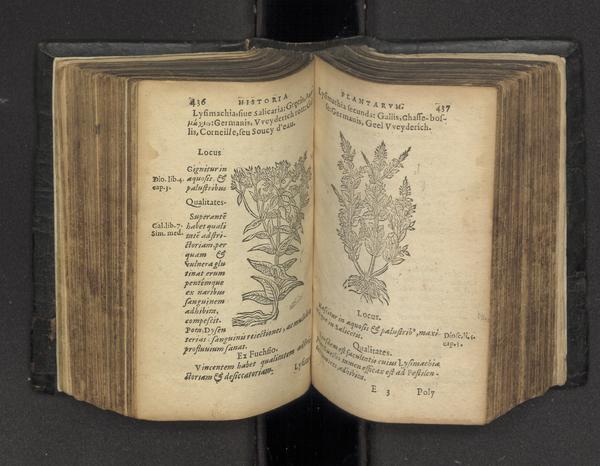 436 HISTORIA
Lysimachia, siue Salicaria: Græcis,
Germanis, Vveyderich
lis, Corneille, seu Soucy d'eau.
Locus
Gignitur in
aquosis, &
palustribus
Dio. lib. 4.
cap. 3.
Qualitates.
Superantē
habet quali
tatē adstri-
ctoriam, per
quam &
vulnera glu
tinat erum
pentémque
ex naribus
sanguinem
adhibita,
compescit.
Pota, Dysen
terias: sanguinis reiectiones, ac muliebre
profluuium sanat.
Gal. lib. 7.
Sim. med.
Ex Fuchsio.
Vincentem habet qualitatem
ctoriam & desiccatoriam.
PLANTARVM. 437
Lysimachia secunda: Gallis, Chasse-bos-
se: Germanis, Geel Vveyderich.
Locus.
Nascitur in aquosis & palustrib', maxi-
in salicetis.
Diosc. li. 4.
cap. 3.
Qualitates.
est facultatis cuius Lysimachia
tamen efficax est ad Pestilen-
adhibita.
E 3 Poly